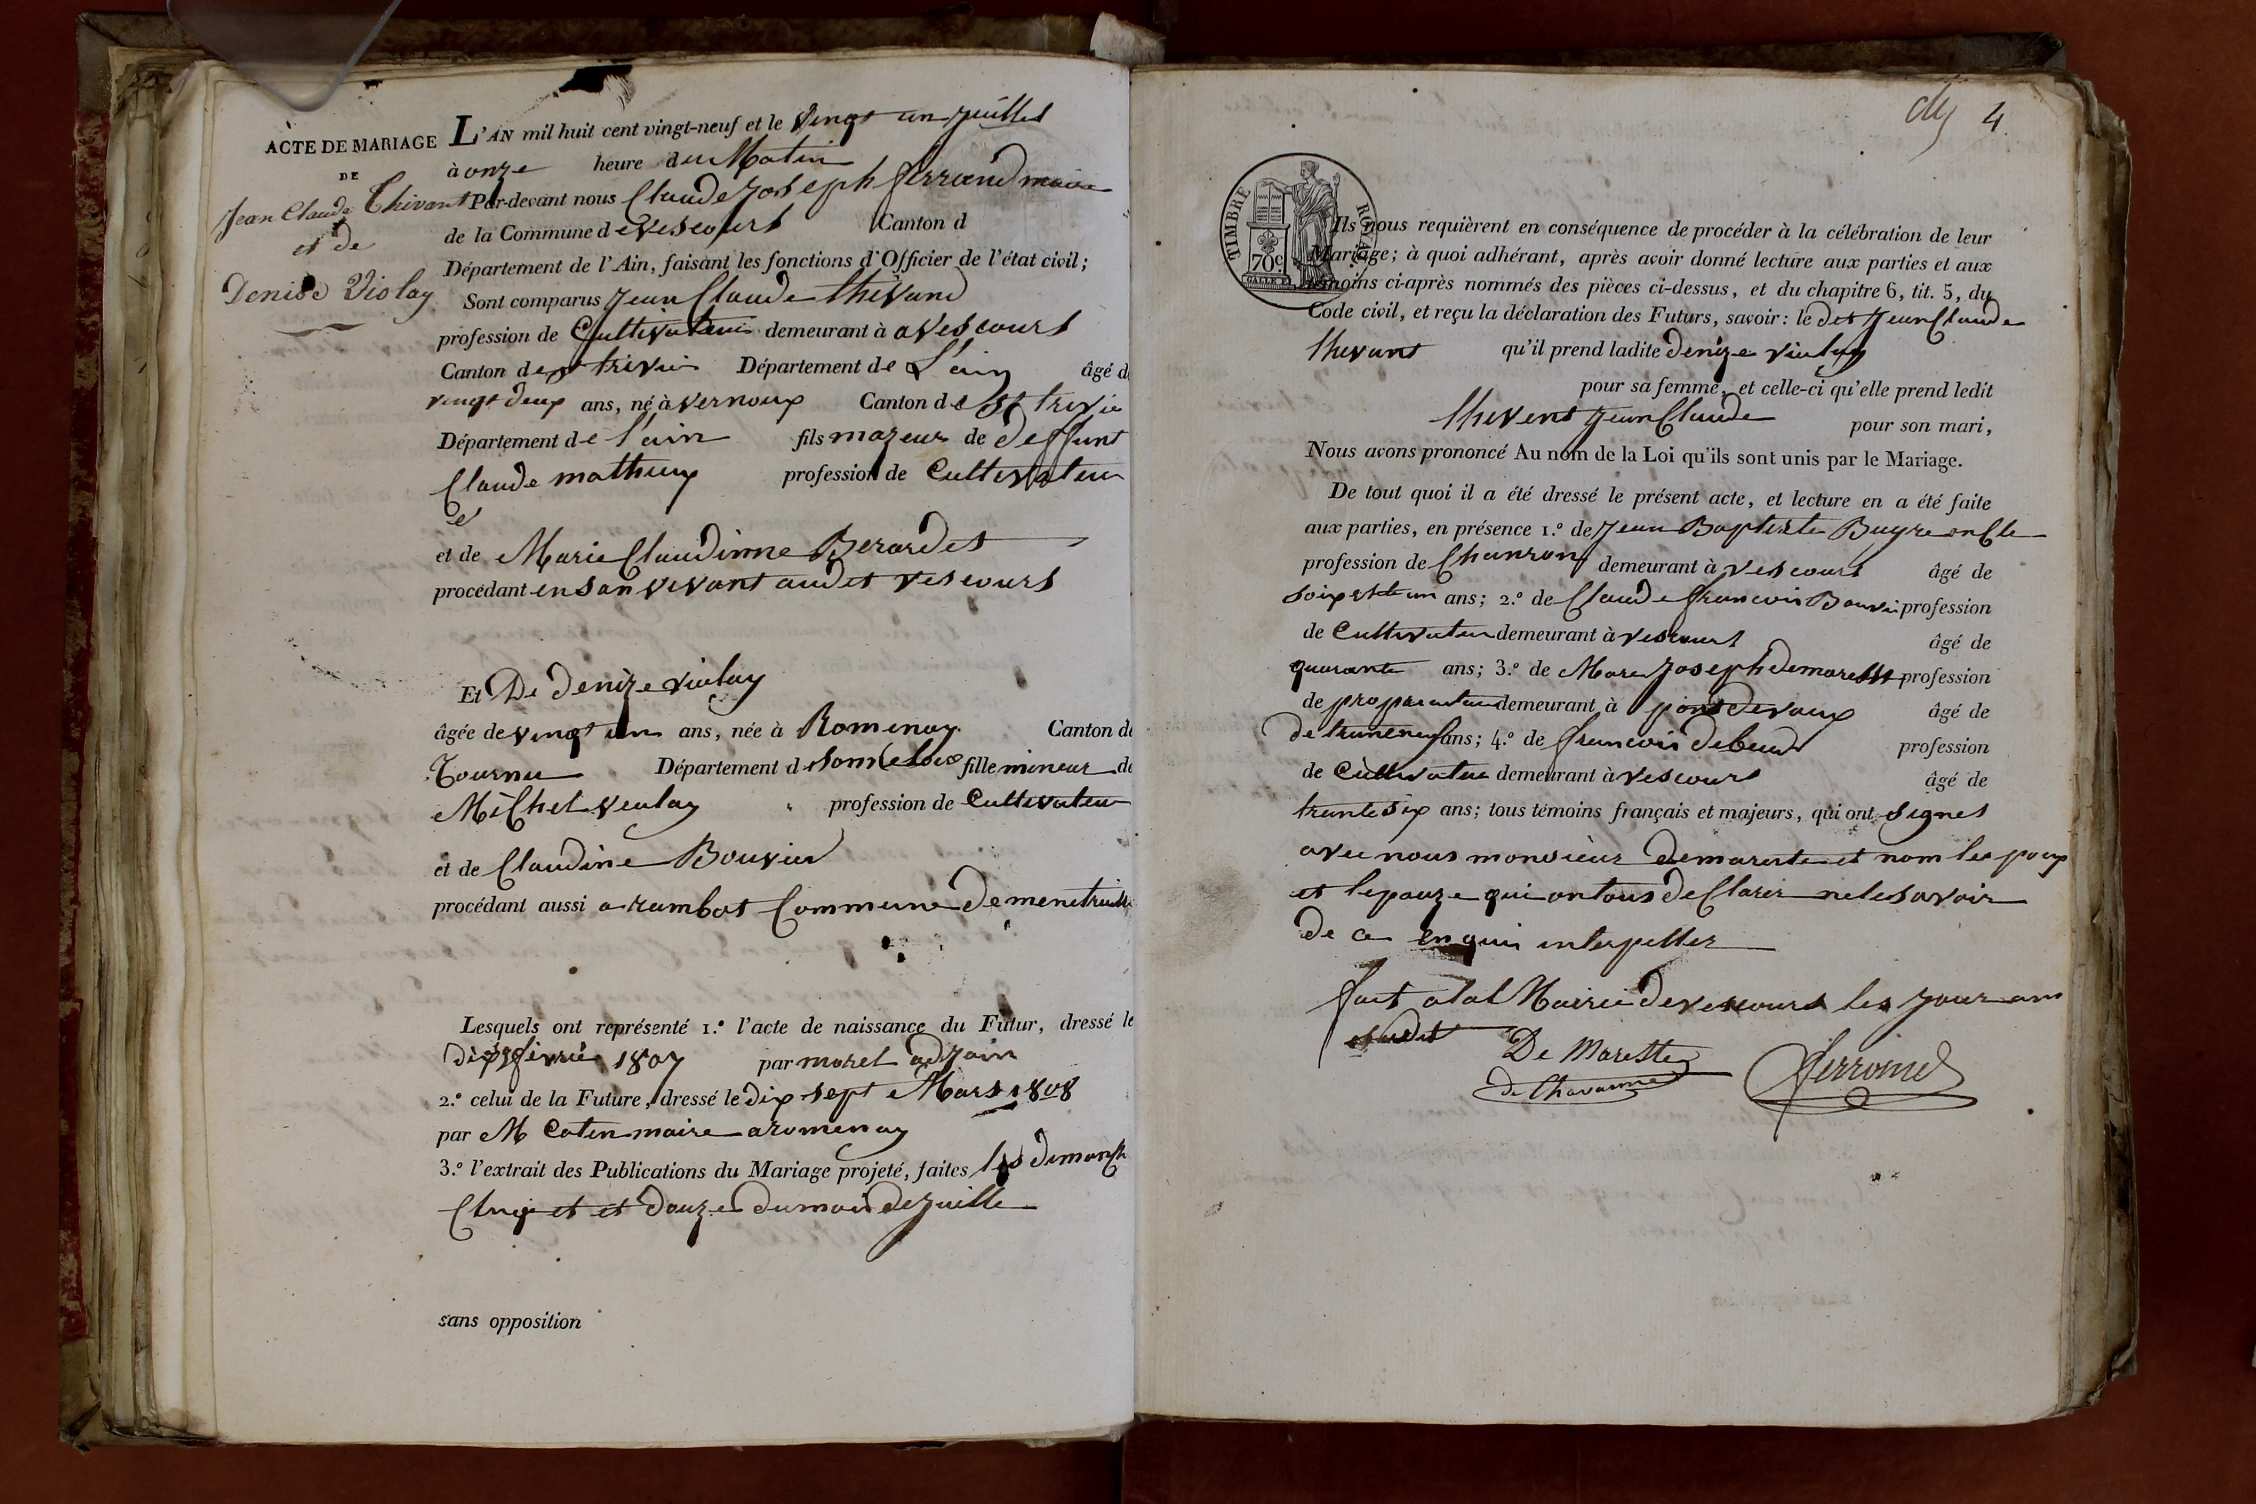 ACTE DE MARIAGE
DE
Jean Claude Thivant
et de
Denise Violay
L'AN mil huit cent vingt-neuf et le vingt un juillet
à onze heure du Matin
Par-devant nous Claude Joseph ferrand maire
de la Commune de Vescours Canton d
Département de l'Ain, faisant les fonctions d'Officier de l'état civil;
Sont comparus Jean Claude thevand
profession de Cultivateur demeurant à avescours
Canton de st trivier Département de L'ain âgé d
vingt deux ans, né à vernoux Canton de st trivie
Département de l'ain fils mazeur de deffunt
Claude mathieux profession de Cultivateur
et de Marie Claudinne Berardet
procédant en son vivant audit vescours
Et De denize violay
âgée de vingt un ans, née à Romenay Canton de
Tournu Département d Sonneloire fille mineur de
Michel violay profession de Cultivateur
et de Claudine Bouvier
procédant aussi a rambot Commune De menetreuil
Lesquels ont représenté 1.° l'acte de naissance du Futur, dressé le
dix février 1807 par morel adjoin
2.° celui de la Future, dressé le dix sept Mars 1808
par M Catin maire a romenay
3.° l'extrait des Publications du Mariage projeté, faites les dimanch
Cinq et et douze du mois de juille
sans opposition
4
TIMBRE ROYAL
70c
Ils nous requièrent en conséquence de procéder à la célébration de leur
Mariage; à quoi adhérant, après avoir donné lecture aux parties et aux
témoins ci-après nommés des pièces ci-dessus, et du chapitre 6, tit. 5, du
Code civil, et reçu la déclaration des Futurs, savoir: le dit Jean Claude
thevant qu'il prend ladite denize violay
pour sa femme, et celle-ci qu'elle prend ledit
thevent Jean Claude pour son mari,
Nous avons prononcé Au nom de la Loi qu'ils sont unis par le Mariage.
De tout quoi il a été dressé le présent acte, et lecture en a été faite
aux parties, en présence 1.° de Jean Baptiste Buyre oncle
profession de Chanron demeurant à vescours âgé de
soixstte un ans; 2.° de Claude francois Bouvie profession
de Cultivateur demeurant à vescours âgé de
quarante ans; 3.° de Marc Joseph demareste profession
de propriaitaire demeurant à pont de vaux âgé de
de trenteneuf ans; 4.° de francois debeaud profession
de Cultivateur demeurant à vescours âgé de
trente six ans; tous témoins français et majeurs, qui ont signet
avec nous monsieur demareste et nom les poux
et lepouze qui on tous de Clarer ne le savoir
de ce enquis interpeller
fait a la Mairie de vescours les jour ans
susdit
De Mareste
de Chavanne
ferrand